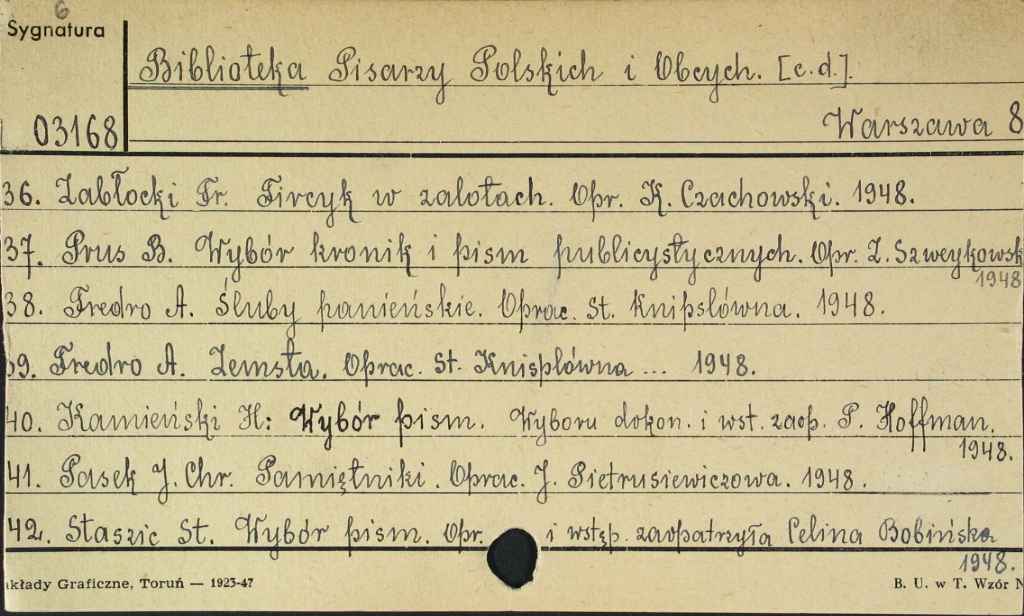 6
Sygnatura
Biblioteka Pisarzy Polskich i Obcych. [c.d.].
03168
Warszawa 8
36. Zabłocki Fr. Fircyk w zalotach. Opr. K. Czachowski. 1948.
37. Prus B. Wybór kronik i pism publicystycznych. Opr. Z. Szweykowsk
1948
38. Fredro A. Śluby panieńskie. Oprac. St. Knipslówna. 1948.
39. Fredro A. Zemsta. Oprac. St. Knisplówna ... 1948.
40. Kamieński H: Wybór pism. Wyboru dokon. i wst. zaop. P. Hoffman.
1948.
41. Pasek J. Chr. Pamiętniki. Oprac. J. Pietrusiewiczowa. 1948.
42. Staszic St. Wybór pism. Opr. i wstęp. zaopatrzyła Celina Bobińska
1948.
akłady Graficzne, Toruń — 1923-47
B. U. w T. Wzór N